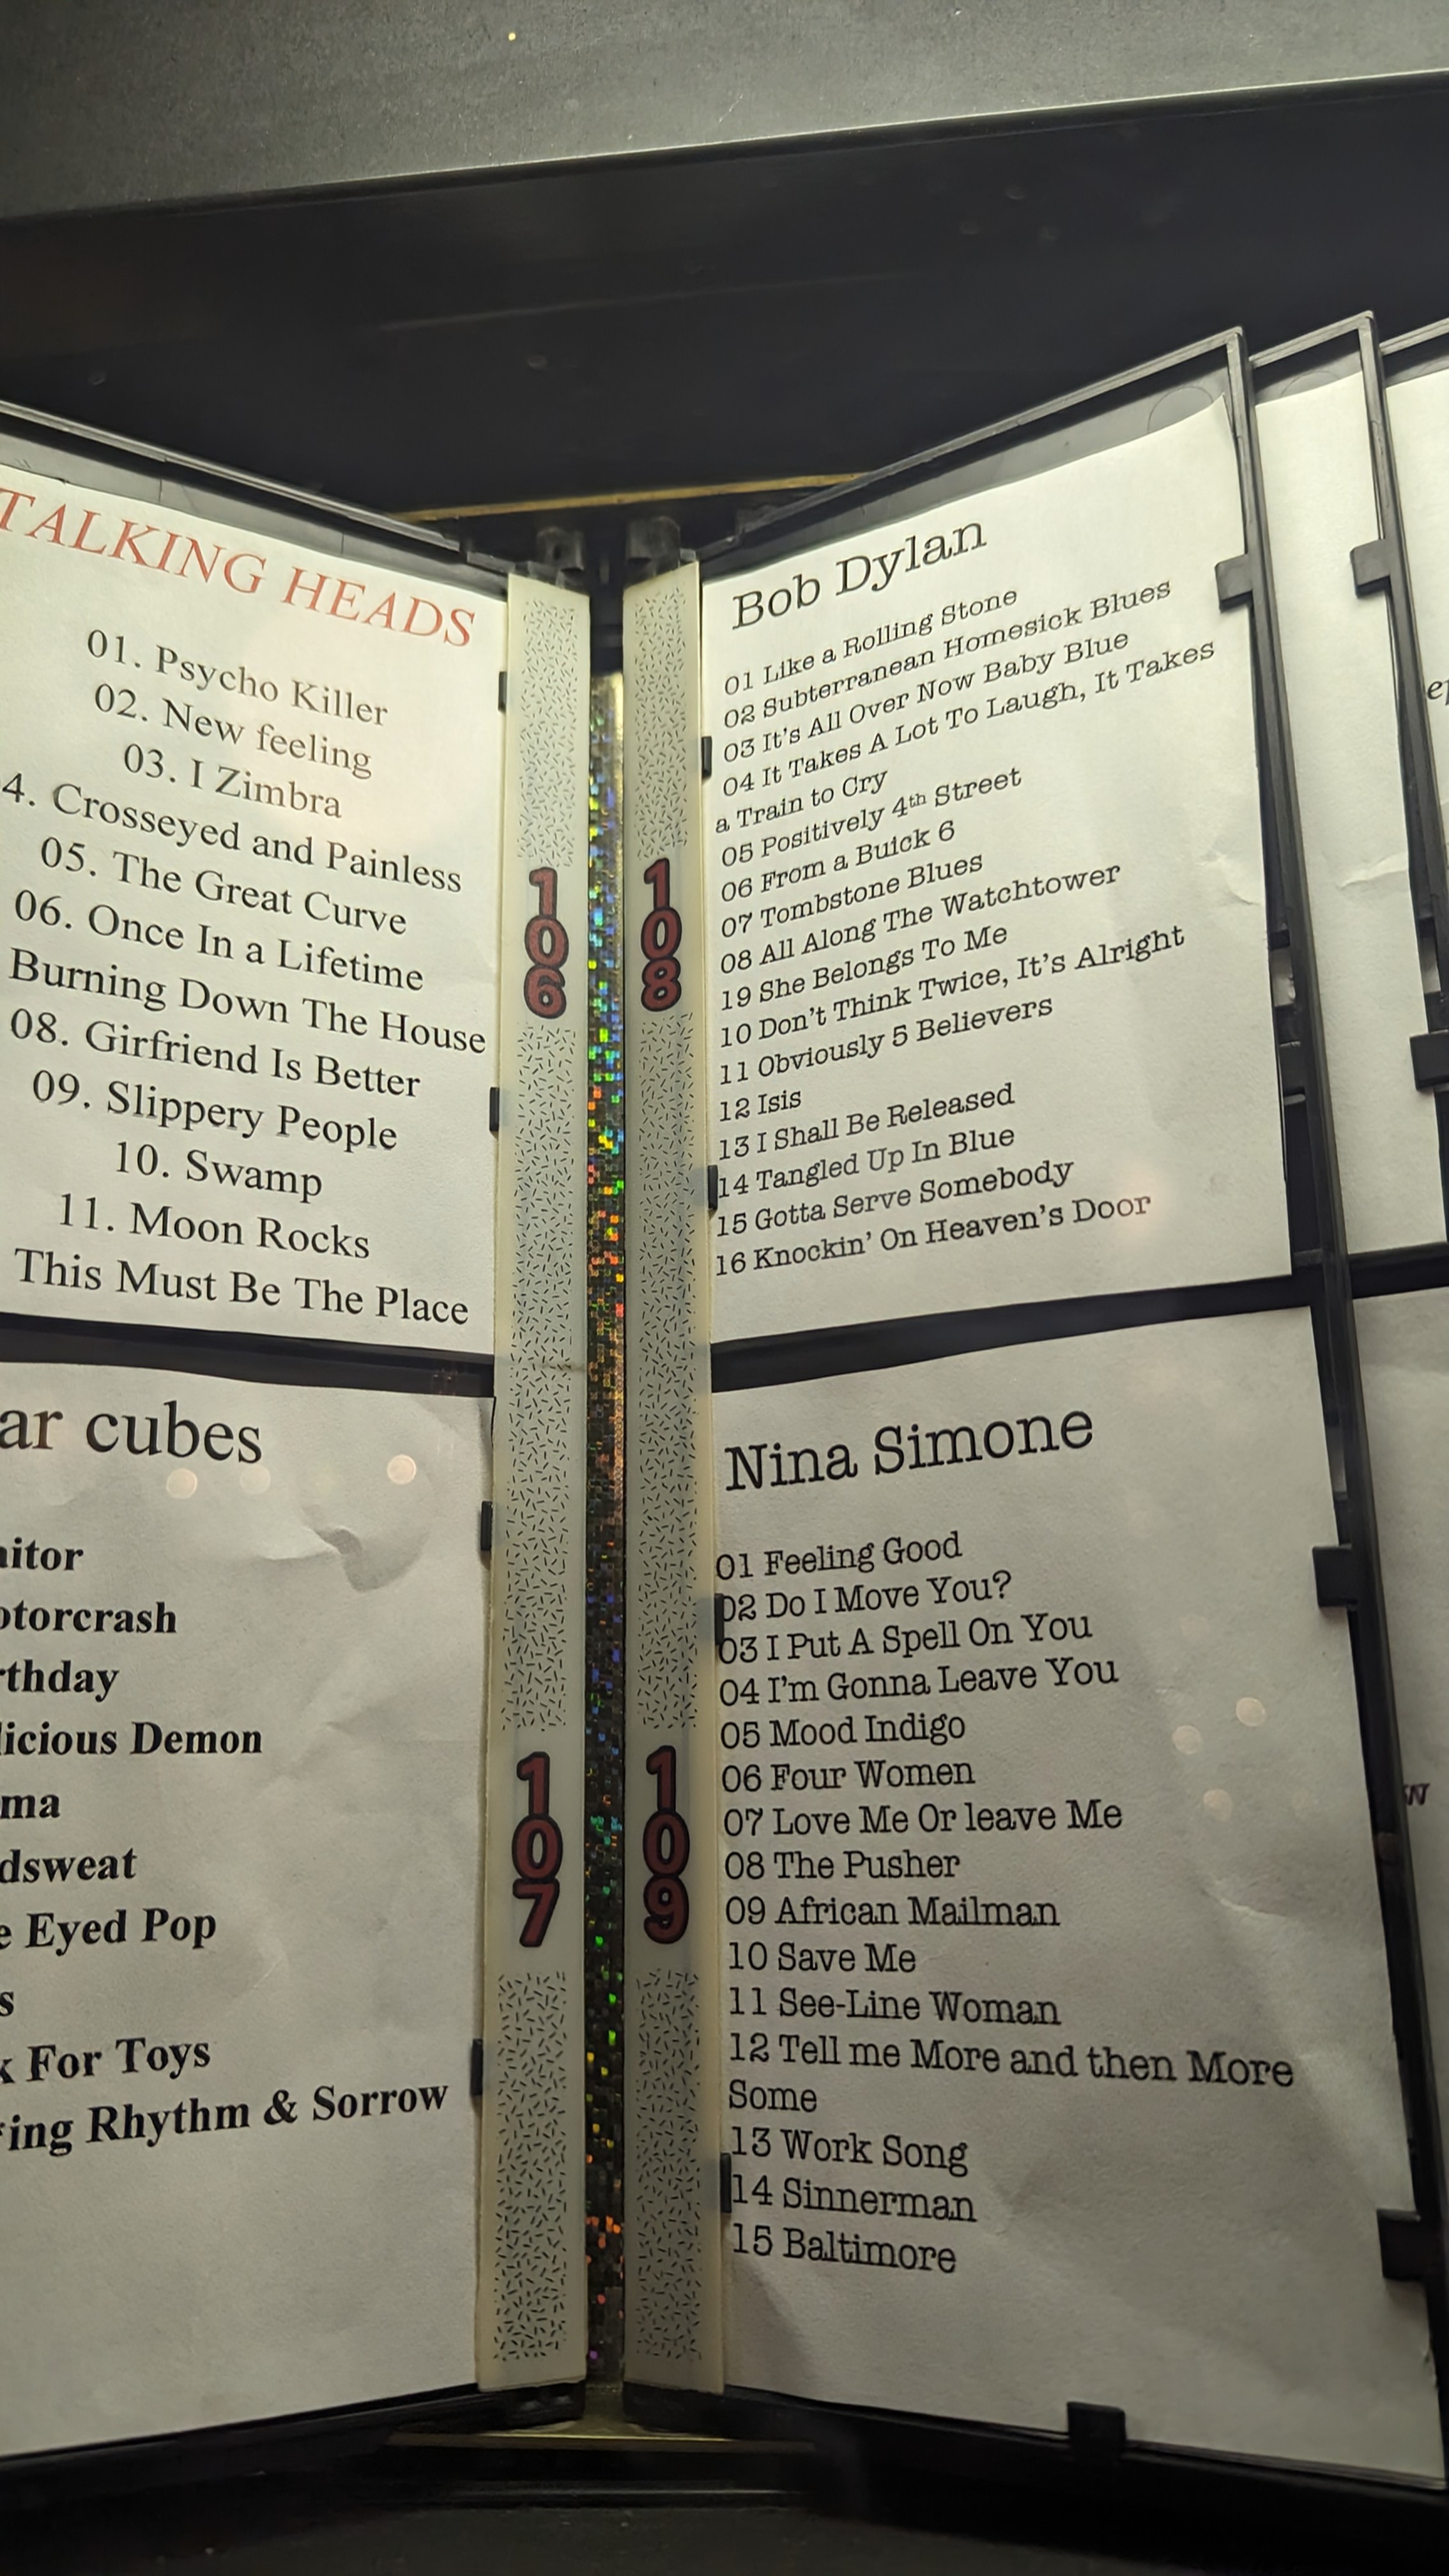 TALKING HEADS
01. Psycho Killer
02. New feeling
03. I Zimbra
4. Crosseyed and Painless
05. The Great Curve
06. Once In a Lifetime
Burning Down The House
08. Girfriend Is Better
09. Slippery People
10. Swamp
11. Moon Rocks
This Must Be The Place
106
ar cubes
itor
otorcrash
rthday
licious Demon
ma
dsweat
e Eyed Pop
s
k For Toys
ing Rhythm & Sorrow
107
108
Bob Dylan
01 Like a Rolling Stone
02 Subterranean Homesick Blues
03 It's All Over Now Baby Blue
04 It Takes A Lot To Laugh, It Takes
a Train to Cry
05 Positively 4th Street
06 From a Buick 6
07 Tombstone Blues
08 All Along The Watchtower
19 She Belongs To Me
10 Don't Think Twice, It's Alright
11 Obviously 5 Believers
12 Isis
13 I Shall Be Released
14 Tangled Up In Blue
15 Gotta Serve Somebody
16 Knockin' On Heaven's Door
109
Nina Simone
01 Feeling Good
02 Do I Move You?
03 I Put A Spell On You
04 I'm Gonna Leave You
05 Mood Indigo
06 Four Women
07 Love Me Or leave Me
08 The Pusher
09 African Mailman
10 Save Me
11 See-Line Woman
12 Tell me More and then More
Some
13 Work Song
14 Sinnerman
15 Baltimore